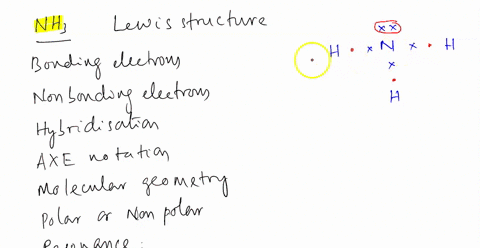 NH3 Lewis structure
Bonding electrons
Nonbonding electrons
Hybridisation
AXE notation
Molecular geometry
Polar or Non polar
Resonance.
x x
H • x N x • H
x
•
H